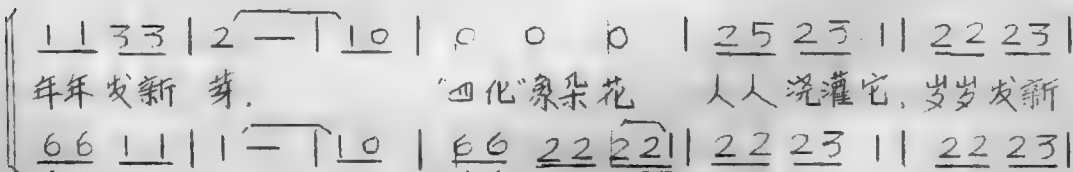 1 1 3 3 | 2 — | 1 0 | 0 0 0 | 2 5 2 3 1 | 2 2 2 3 |
年年发新芽. "四化"朵朵花 人人浇灌它, 岁岁发新
6 6 1 1 | 1 — | 1 0 | 6 6 2 2 2 2 | 2 2 2 3 1 | 2 2 2 3 |